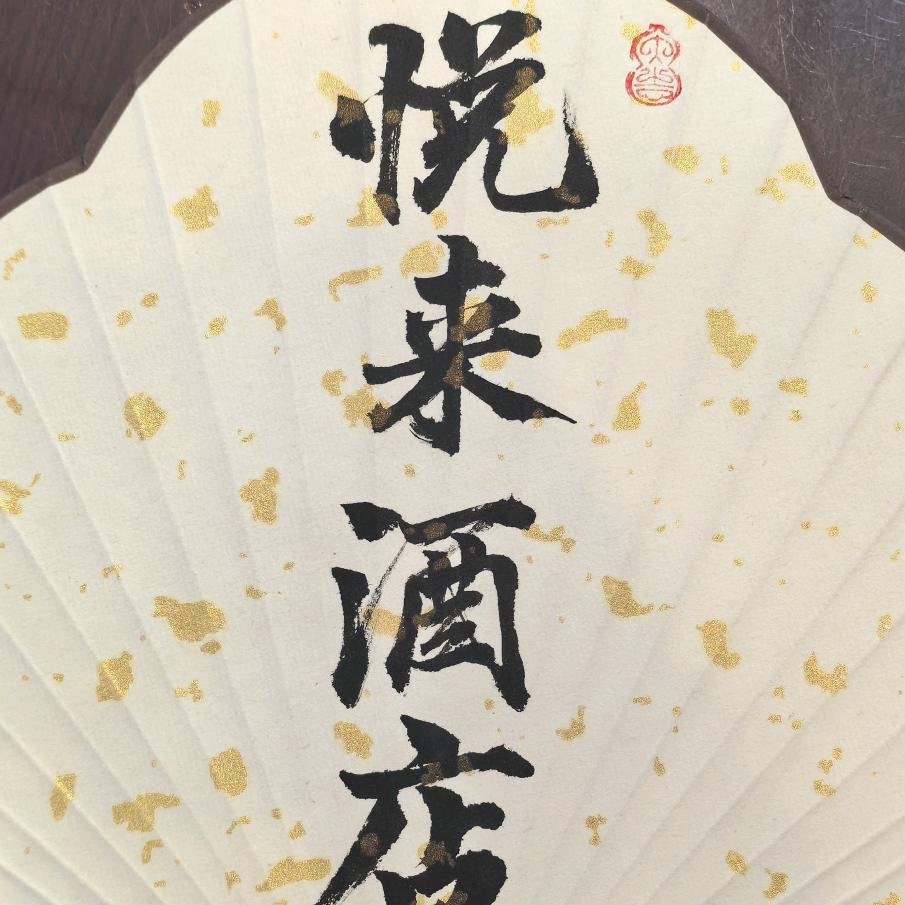 悦来酒店